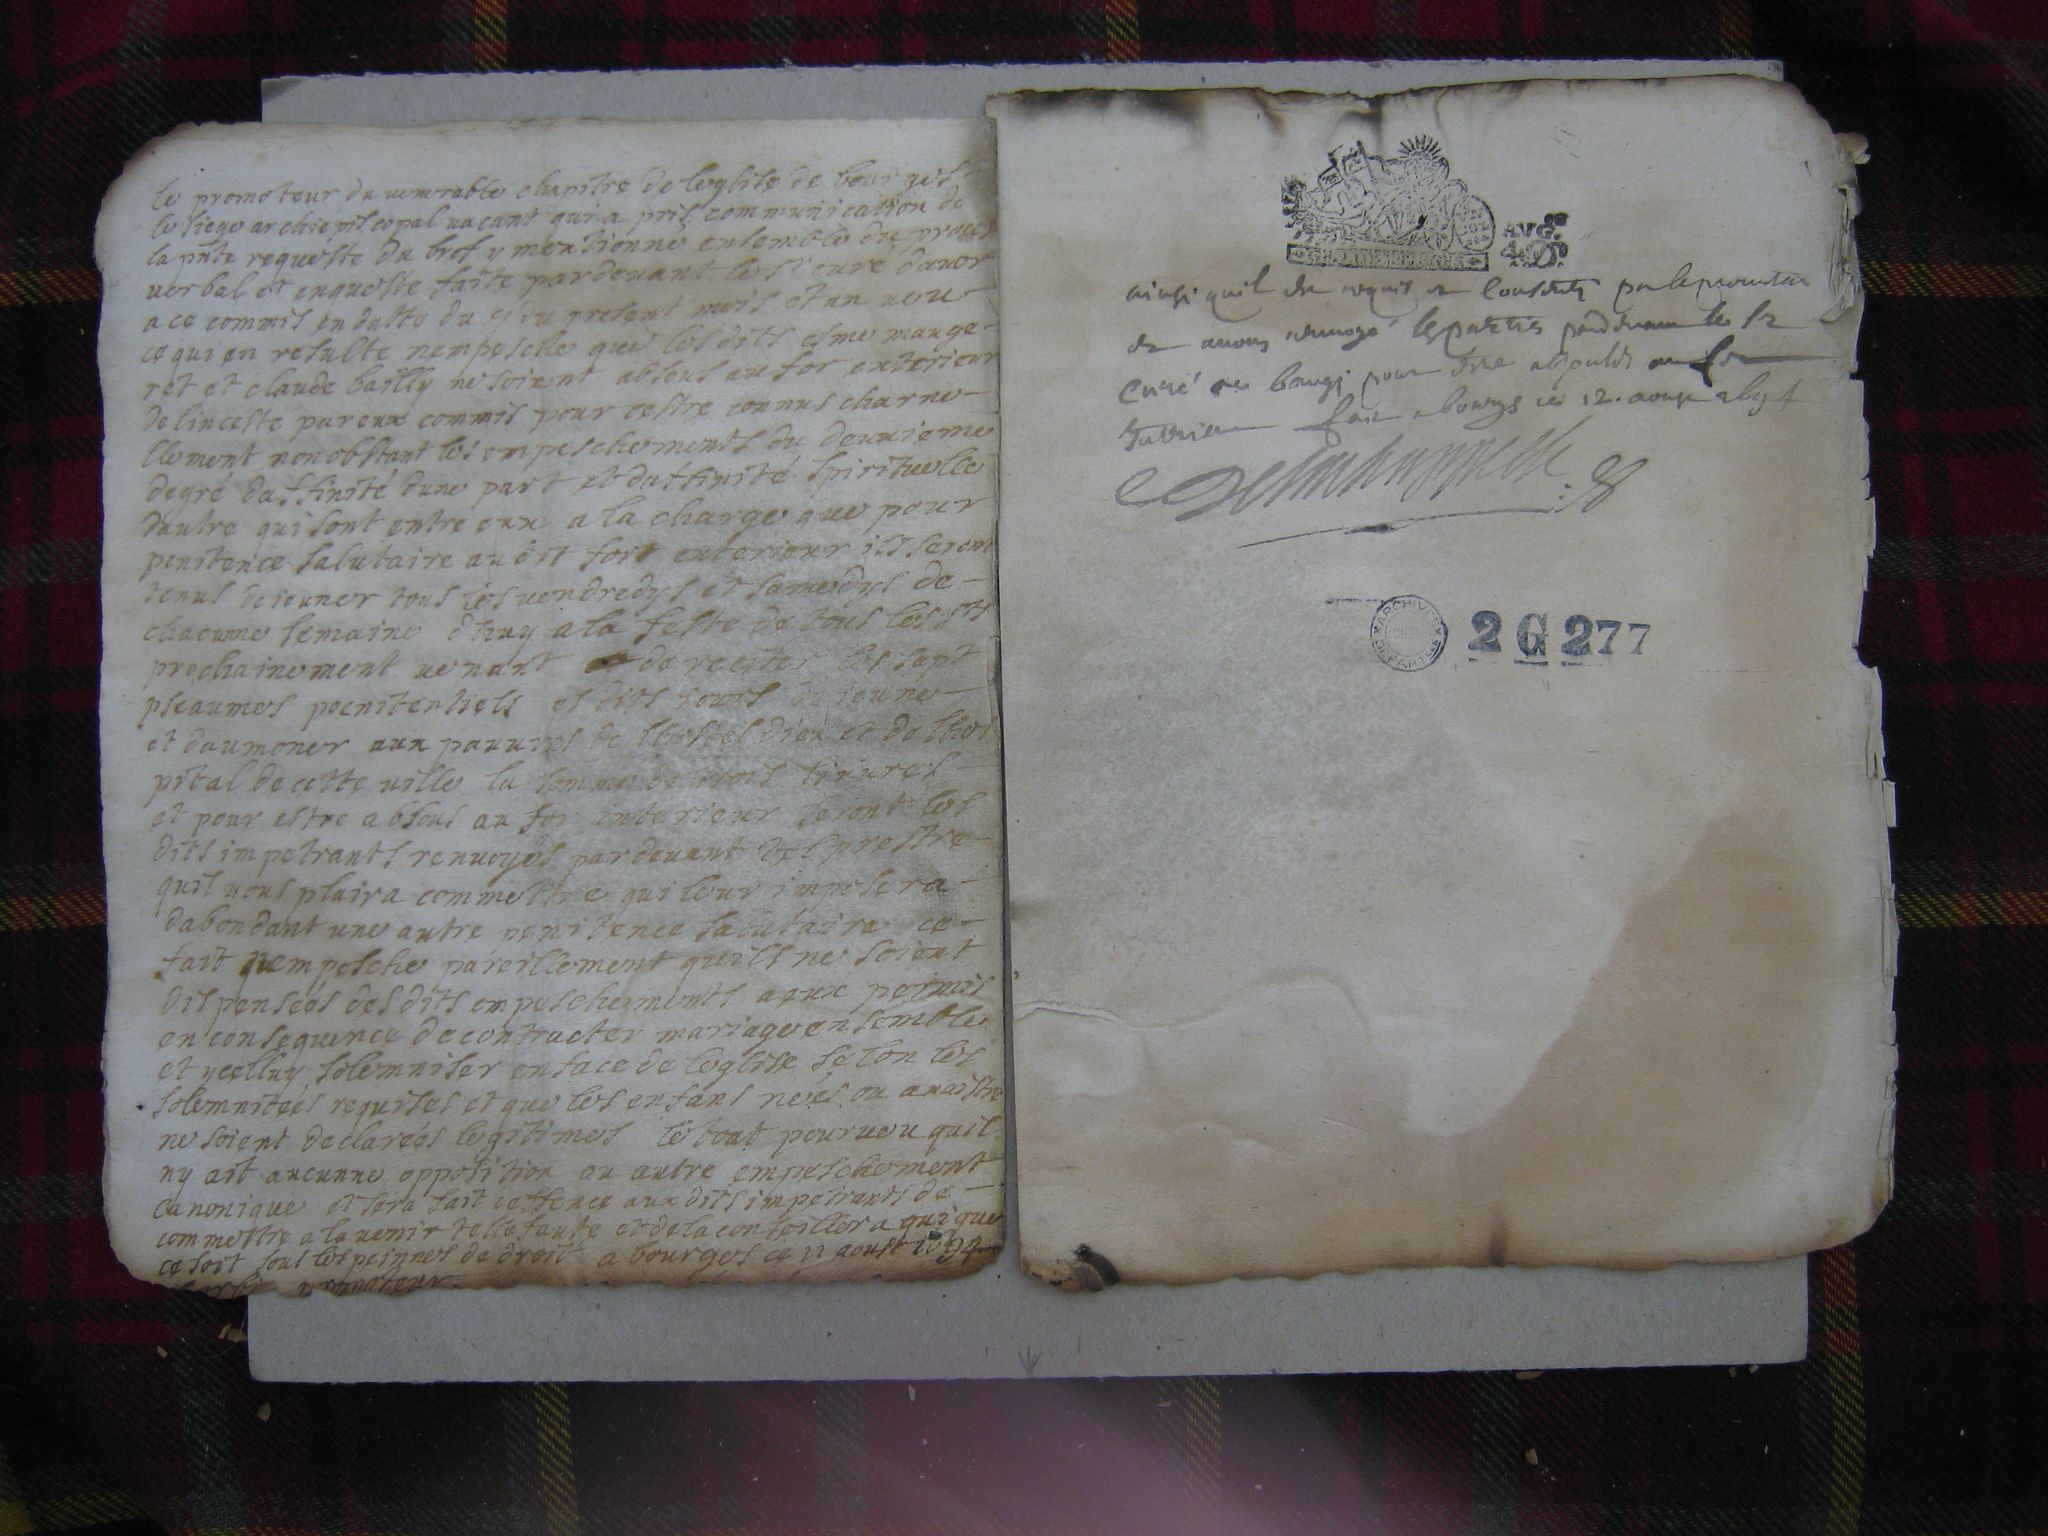 le promoteur du venerable chapitre de leglise de bourges
le siege archiepiscopal vacant qui a pris communication de
la pnte requeste du bref y mentionné ensemble du proces
verbal et enqueste faite pardevant le sr curé davor
a ce commis en datte du 9 du present mois et an veu
ce qui en resulte nempesche que les dits esme mauge-
ret et claude bailly ne soient absous au for exterieur
de linceste par eux commis pour cestre connus charne-
llement nonobstant les empeschements du deuxieme
degré daffinité dune part et daffinité spirituelle
dautre qui sont entre eux a la charge que pour
penitence salutaire au dit fort exterieur ils seront
tenus de jeuner tous les vendredys et samedys de
chacune semaine dhuy a la feste de tous les sts
prochainement venant de reciter les sept
pseaumes poenitentiels es dits jours de jeune
et daumoner aux pauvres de lhostel dieu et de lhos
pital de cette ville la somme de trois livres
et pour estre absous au for interieur seront les
dits impetrants renvoyés pardevant tel prestre
quil vous plaira commettre qui leur imposera
dabondant une autre penitence salutaire ce
fait nempesche pareillement quils ne soient
dispensées des dits empeschements a eux permis
en consequence de contracter mariage ensemble
et ycelluy solemniser en face de leglise selon les
solemnitées requises et que les enfans neés ou a naistre
ne soient declarées legitimes le tout pourveu quil
ny ait aucunne opposition ou autre empeschement
canonique et sera fait deffence aux dits impetrants de
commettre a lavenir telle faute et de la conseiller a qui que
ce soit sous les peinnes de droit a bourges ce 11 aoust 1694
promoteur
AVG.
GEN DE BOURGES
ainsi quil est requis et consenty par le promoteur
et avons renvoyé les parties pardevant le sr
curé de baugi pour estre absouls au for
interieur fait a bourges ce 12. aoust
ARCHIVES
DEPARTEM
CHER
2 G 277